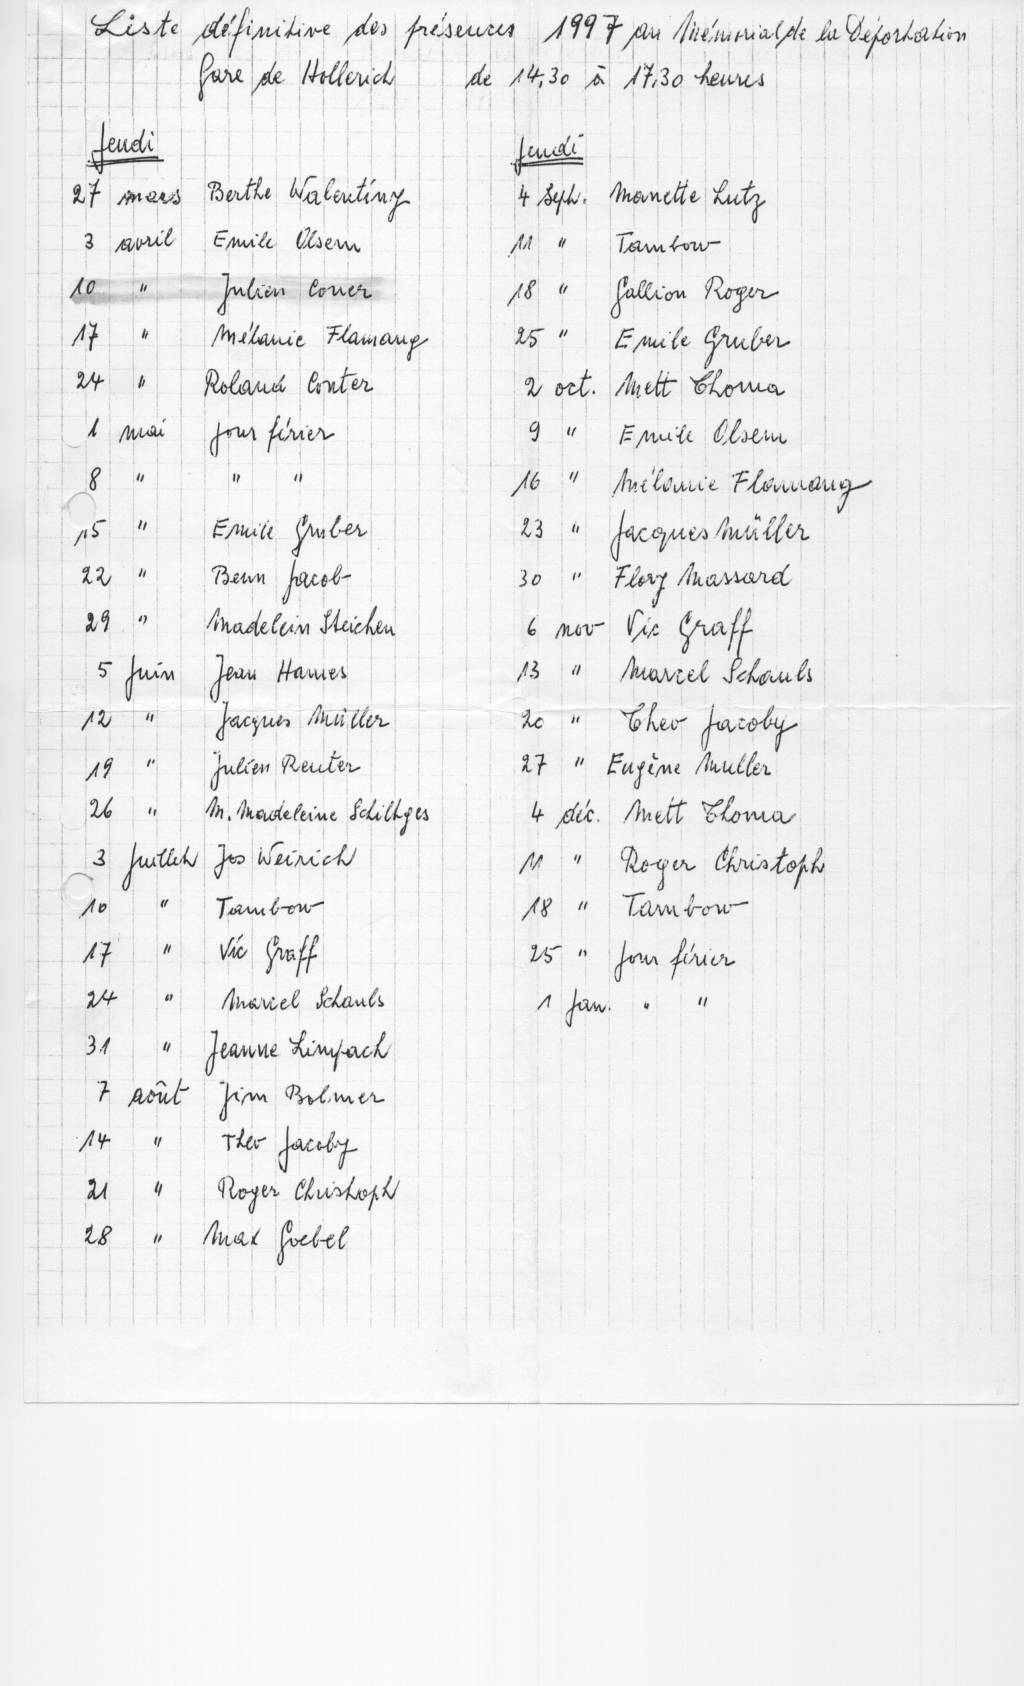 Liste définitive des présences 1997 au Mémorial de la Déportation
Gare de Hollerich de 14,30 à 17,30 heures
Jeudi
27 mars Berthe Walentiny
3 avril Emile Olsem
10 " Julien Coner
17 " Mélanie Flamang
24 " Roland Conter
1 mai jour férier
8 " " "
15 " Emile Gruber
22 " Benn Jacob
29 " Madelein Steichen
5 Juin Jean Hames
12 " Jacques Müller
19 " Julien Reuter
26 " M. Madeleine Schiltges
3 Juillet Jos Weirich
10 " Tambow
17 " Vic Graff
24 " Marcel Schauls
31 " Jeanne Limpach
7 août Jim Bolmer
14 " Theo Jacoby
21 " Roger Christoph
28 " Max Goebel
Jeudi
4 Sept. Manette Lutz
11 " Tambow
18 " Gallion Roger
25 " Emile Gruber
2 oct. Mett Thoma
9 " Emile Olsem
16 " Mélanie Flamang
23 " Jacques Müller
30 " Flory Massard
6 nov Vic Graff
13 " Marcel Schauls
20 " Theo Jacoby
27 " Eugène Muller
4 déc. Mett Thoma
11 " Roger Christoph
18 " Tambow
25 " Jour férier
1 Jan. " "